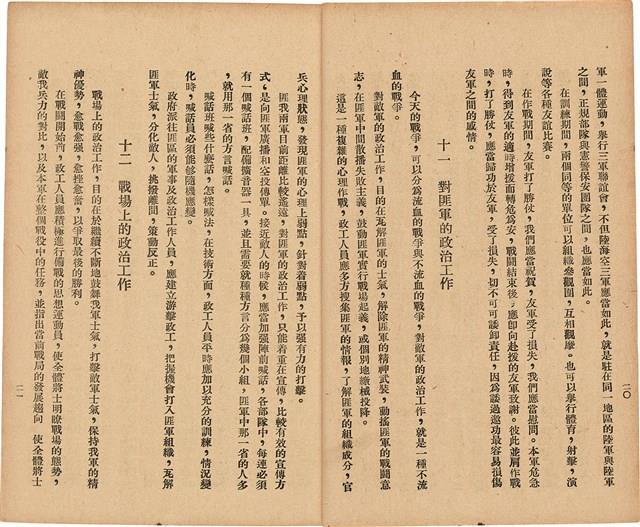 軍一體運動，舉行三軍聯誼會，不但陸海空三軍應當如此，就是駐在同一地區的陸軍與陸軍
之間，正規部隊與憲警保安團隊之間，也應當如此。
在訓練期間，兩個同等的單位可以組織參觀團，互相觀摩。也可以舉行體育，射擊，演
說等各種友誼比賽。
在作戰期間，友軍打了勝仗，我們應當祝賀，友軍受了損失，我們應當慰問。本軍危急
時，得到友軍的適時增援而轉危為安，戰鬪結束後，應卽向赴援的友軍致謝。彼此並肩作戰
時，打了勝仗，應當歸功於友軍，受了損失，切不可諉卸責任，因為諉過邀功最容易損傷
友軍之間的感情。
十一　對匪軍的政治工作
今天的戰爭，可以分為流血的戰爭與不流血的戰爭，對敵軍的政治工作，就是一種不流
血的戰爭。
對敵軍的政治工作，目的在瓦解匪軍的士氣，解除匪軍的精神武裝，動搖匪軍的戰鬪意
志，在匪軍中間散播失敗主義，鼓動匪軍實行戰場起義，或個別地繳械投降。
這是一種複雜的心理作戰，政工人員應多方搜集匪軍的情報，了解匪軍的組織成分，官
二〇
兵心理狀態，發現匪軍的心理上弱點，針對着弱點，予以强有力的打擊。
匪我兩軍目前距離比較遙遠，對匪軍的政治工作，只能着重在宣傳，比較有效的宣傳方
式，是向匪軍廣播和空投傳單。接近敵人的時候，應當加强陣前喊話，各部隊中，每連必須
有一個喊話班，配備擴音器一具，並且需要就種種方言分為幾個小組，匪軍中那一省的人多
，就用那一省的方言喊話。
喊話班喊些什麼話，怎樣喊法，在技術方面，政工人員平時應加以充分的訓練，情況變
化時，喊話員必須能够隨機應變。
政府派往匪區的軍事及政治工作人員，應建立游擊政工，把握機會打入匪軍組織，瓦解
匪軍士氣，分化敵人，挑撥離間，策動反正。
十二　戰場上的政治工作
戰場上的政治工作，目的在於繼續不斷地鼓舞我軍士氣，打擊敵軍士氣，保持我軍的精
神優勢，愈戰愈强，愈挫愈奮，以爭取最後的勝利。
在戰鬪開始前，政工人員應積極進行備戰的思想運動員，使全體將士明瞭戰場的態勢，
敵我兵力的對比，以及本軍在整個戰役中的任務，並指出當前戰局的發展趨向　使全體將士
二一